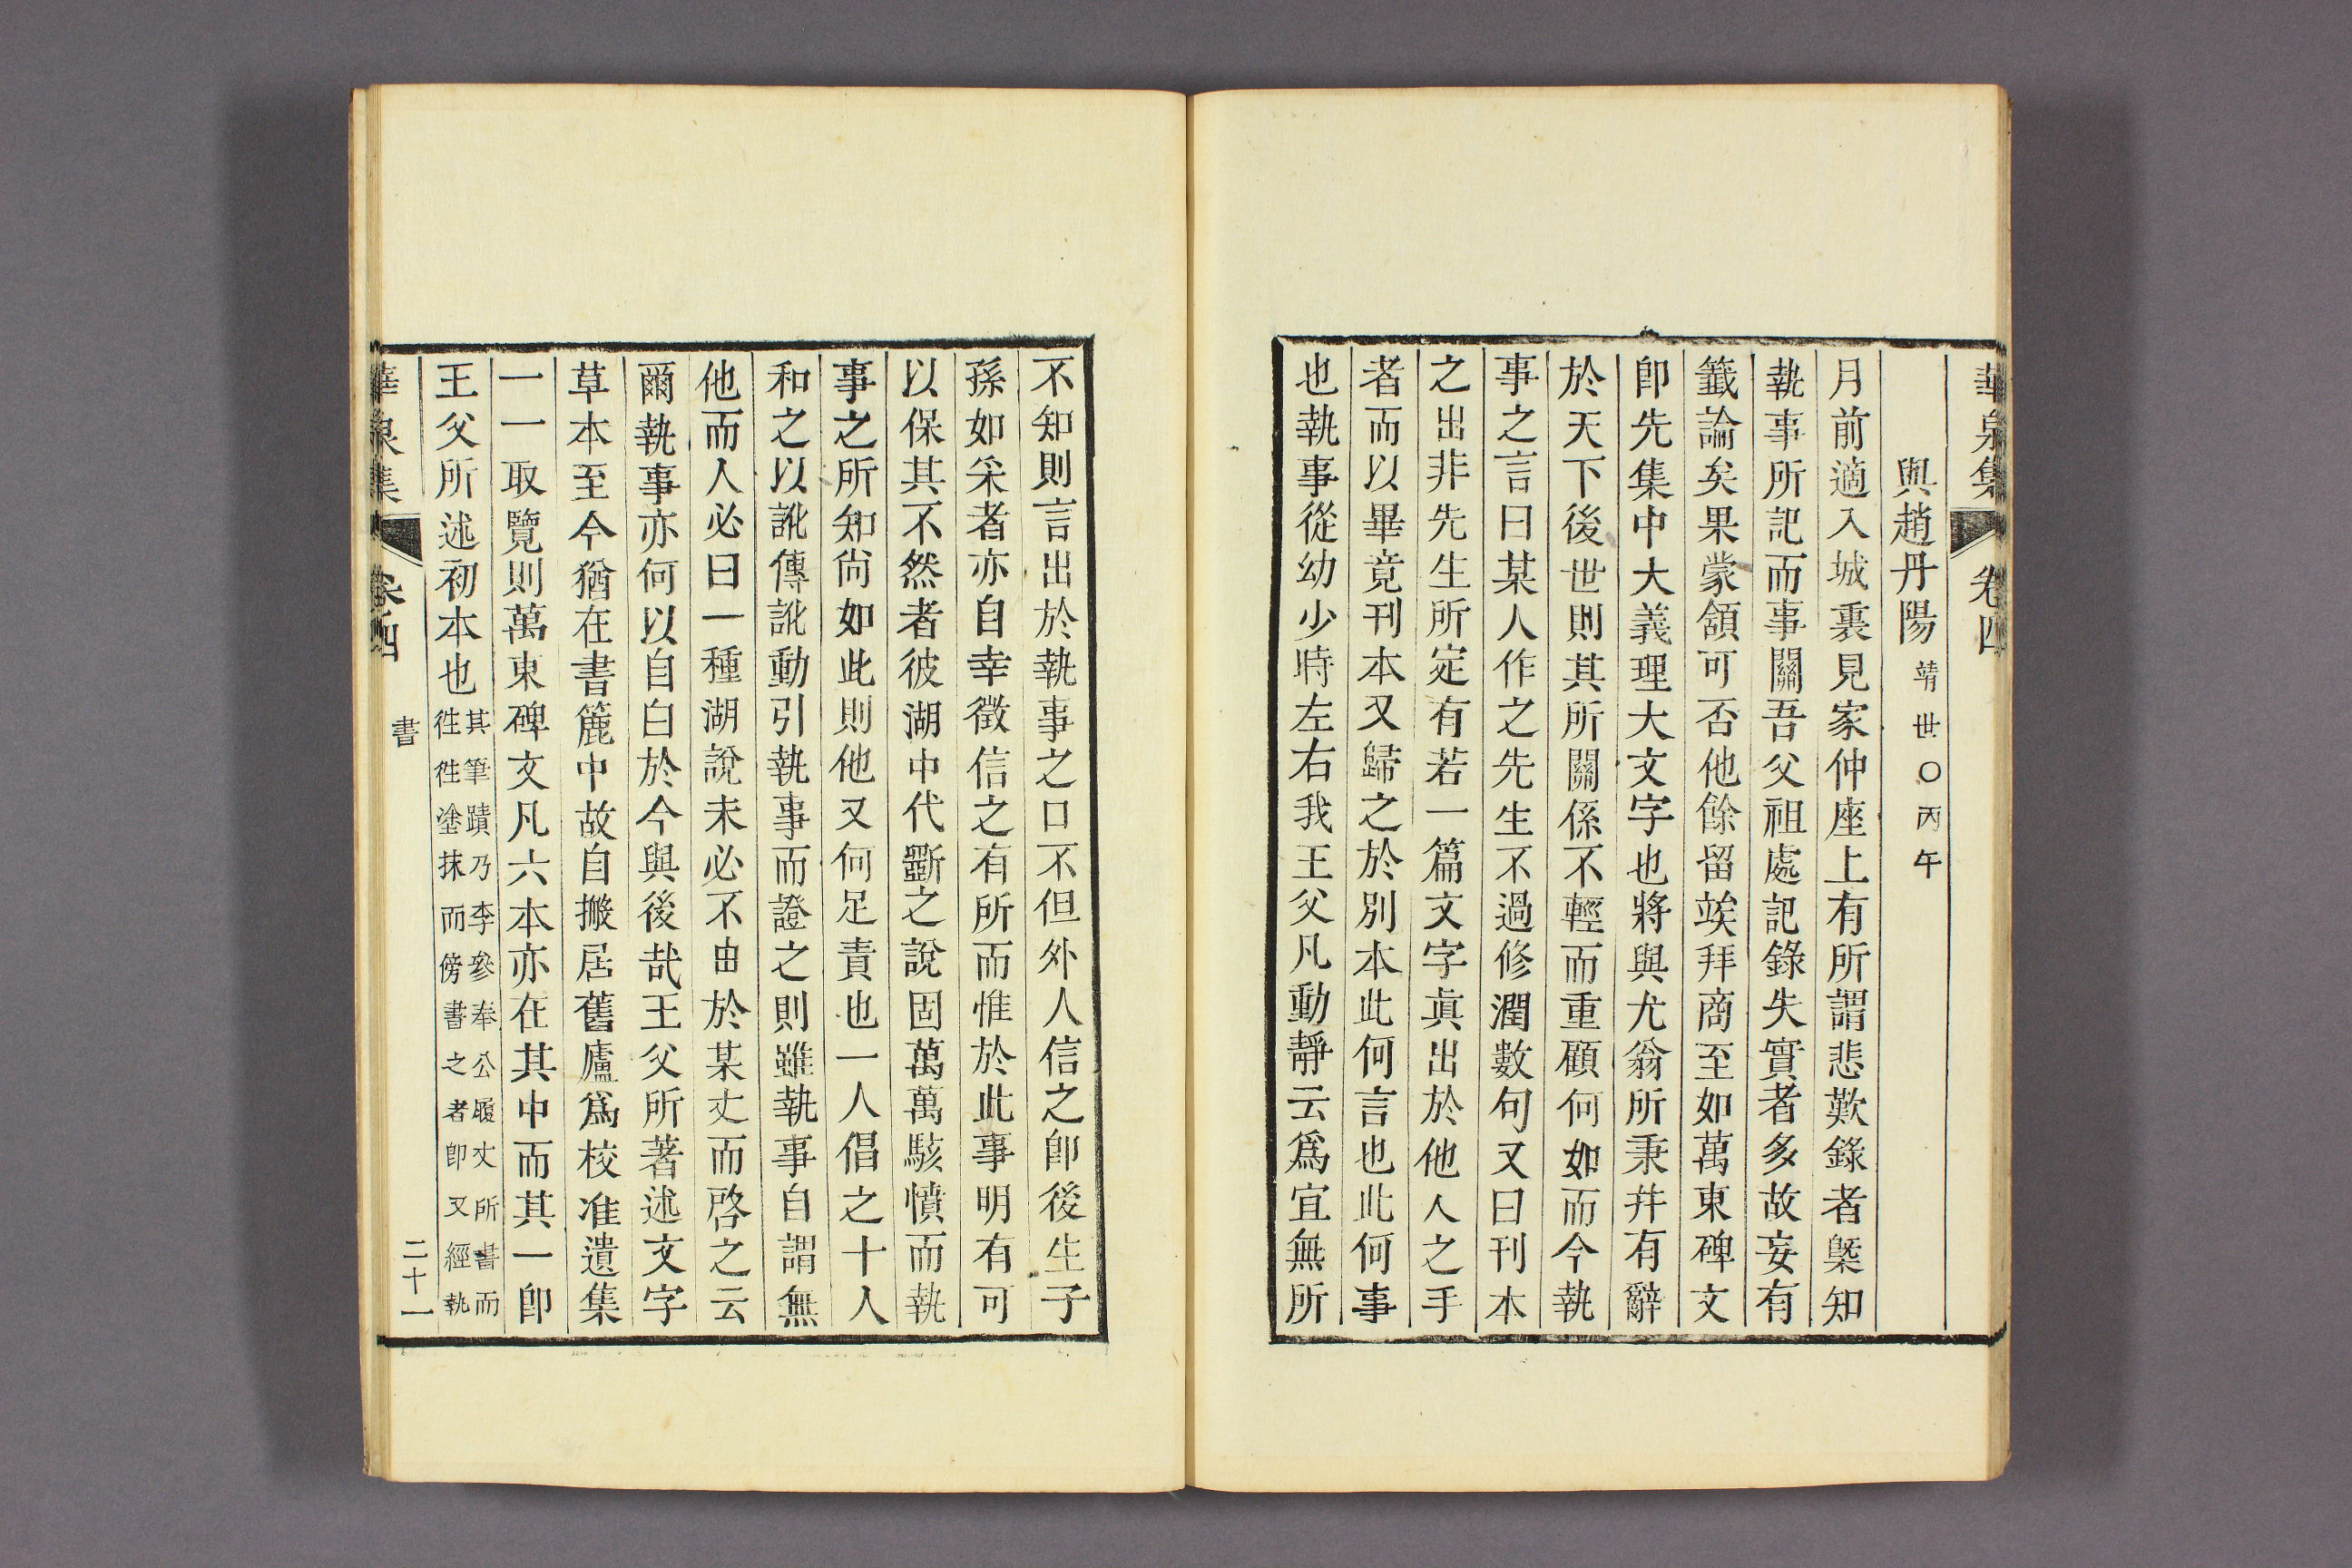 華泉集 卷四
與趙丹陽 靖世○丙午
月前適入城裏見家仲座上有所謂悲歎錄者槩知
執事所記而事關吾父祖處記錄失實者多故妄有
籤論矣果蒙領可否他餘留竢拜商至如萬東碑文
卽先集中大義理大文字也將與尤翁所秉幷有辭
於天下後世則其所關係不輕而重顧何如而今執
事之言曰某人作之先生不過修潤數句又曰刊本
之出非先生所定有若一篇文字眞出於他人之手
者而以畢竟刊本又歸之於別本此何言也此何事
也執事從幼少時左右我王父凡動靜云爲宜無所
不知則言出於執事之口不但外人信之卽後生子
孫如采者亦自幸徵信之有所而惟於此事明有可
以保其不然者彼湖中代斲之說固萬萬駭憤而執
事之所知尙如此則他又何足責也一人倡之十人
和之以訛傳訛動引執事而證之則雖執事自謂無
他而人必曰一種湖說未必不由於某丈而啓之云
爾執事亦何以自白於今與後哉王父所著述文字
草本至今猶在書簏中故自搬居舊廬爲校准遺集
一一取覽則萬東碑文凡六本亦在其中而其一卽
王父所述初本也 其筆蹟乃李參奉公履丈所書而
徃徃塗抹而傍書之者卽又經執
華泉集 卷四 書 二十一